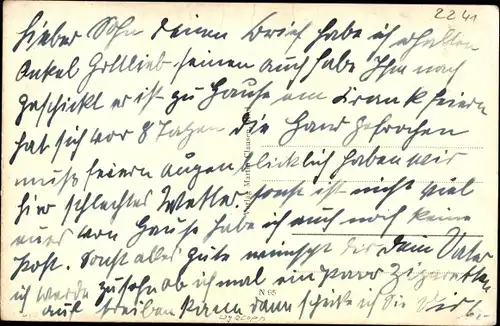 2241
Lieber Sohn deinen Brief habe ich erhalten
Onkel Gottlieb seinen auch habe Ihm nach
geschickt er ist zu Hause am Krank feiern
hat sich vor 8 Tagen die Hand gebrochen
muß feiern augenblicklich haben wir
hir schlechtes Wetter. sonst ist nicht viel
von Hause habe ich auch noch keine
Post. Sonst alles gute wünscht der dein Vater
ich werde zusehn ob ich mal ein paar Zigaretten
auf treiben kann dann schicke ich Sie Dir
N 65